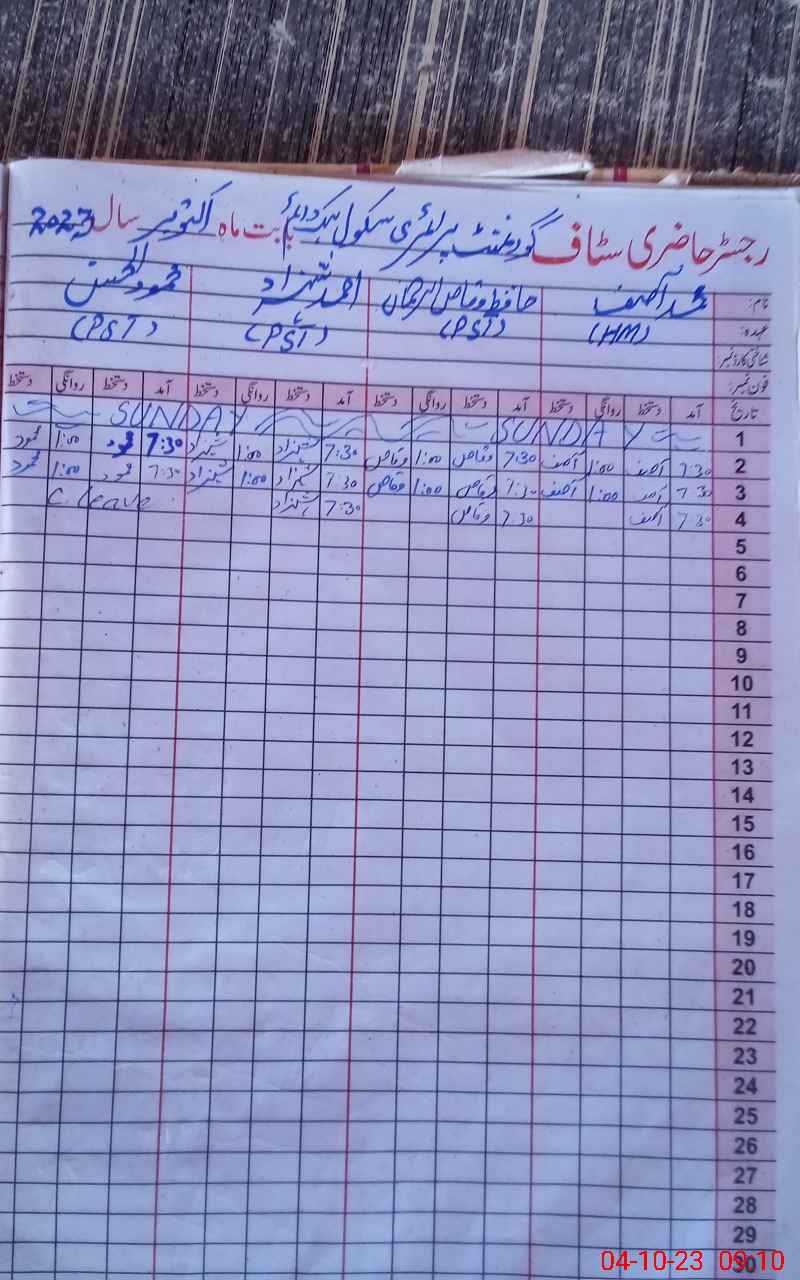 رجسٹر حاضری سٹاف گورنمنٹ پرائمری سکول بابت ماہ اکتوبر سال 2023
نام: محمد آصف حافظ وقاص الرحمان احمد شہزاد محمود الحسن
عہدہ: (HM) (PST) (PST) (PST)
شناختی کارڈ نمبر
فون نمبر:
تاریخ آمد دستخط روانگی دستخط آمد دستخط روانگی دستخط آمد دستخط روانگی دستخط آمد دستخط روانگی دستخط
1 SUNDAY SUNDAY
2 7:30 آصف 1:00 آصف 7:30 وقاص 1:00 وقاص 7:30 شہزاد 1:00 شہزاد 7:30 محمود 1:00 محمود
3 7:30 آصف 1:00 آصف 7:30 وقاص 1:00 وقاص 7:30 شہزاد 1:00 شہزاد 7:30 محمود 1:00 محمود
4 7:30 آصف 7:30 وقاص 7:30 شہزاد C. leave
5
6
7
8
9
10
11
12
13
14
15
16
17
18
19
20
21
22
23
24
25
26
27
28
29
30
04-10-23 09:10